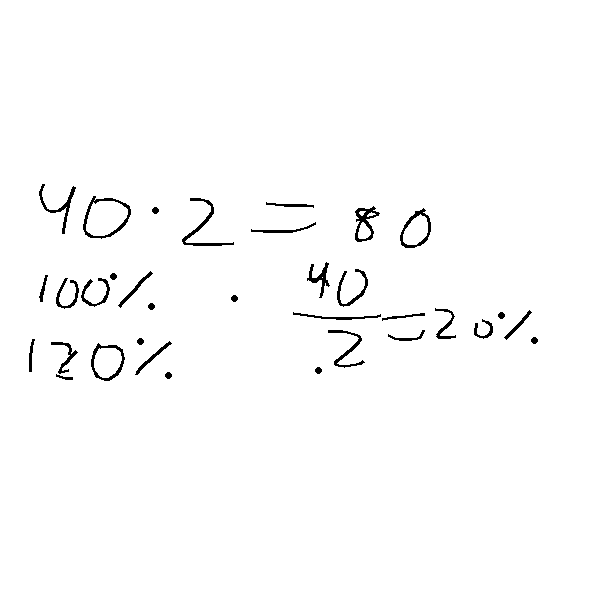 40 · 2 = 80
100% · 40
/ .2 = 20%
120%